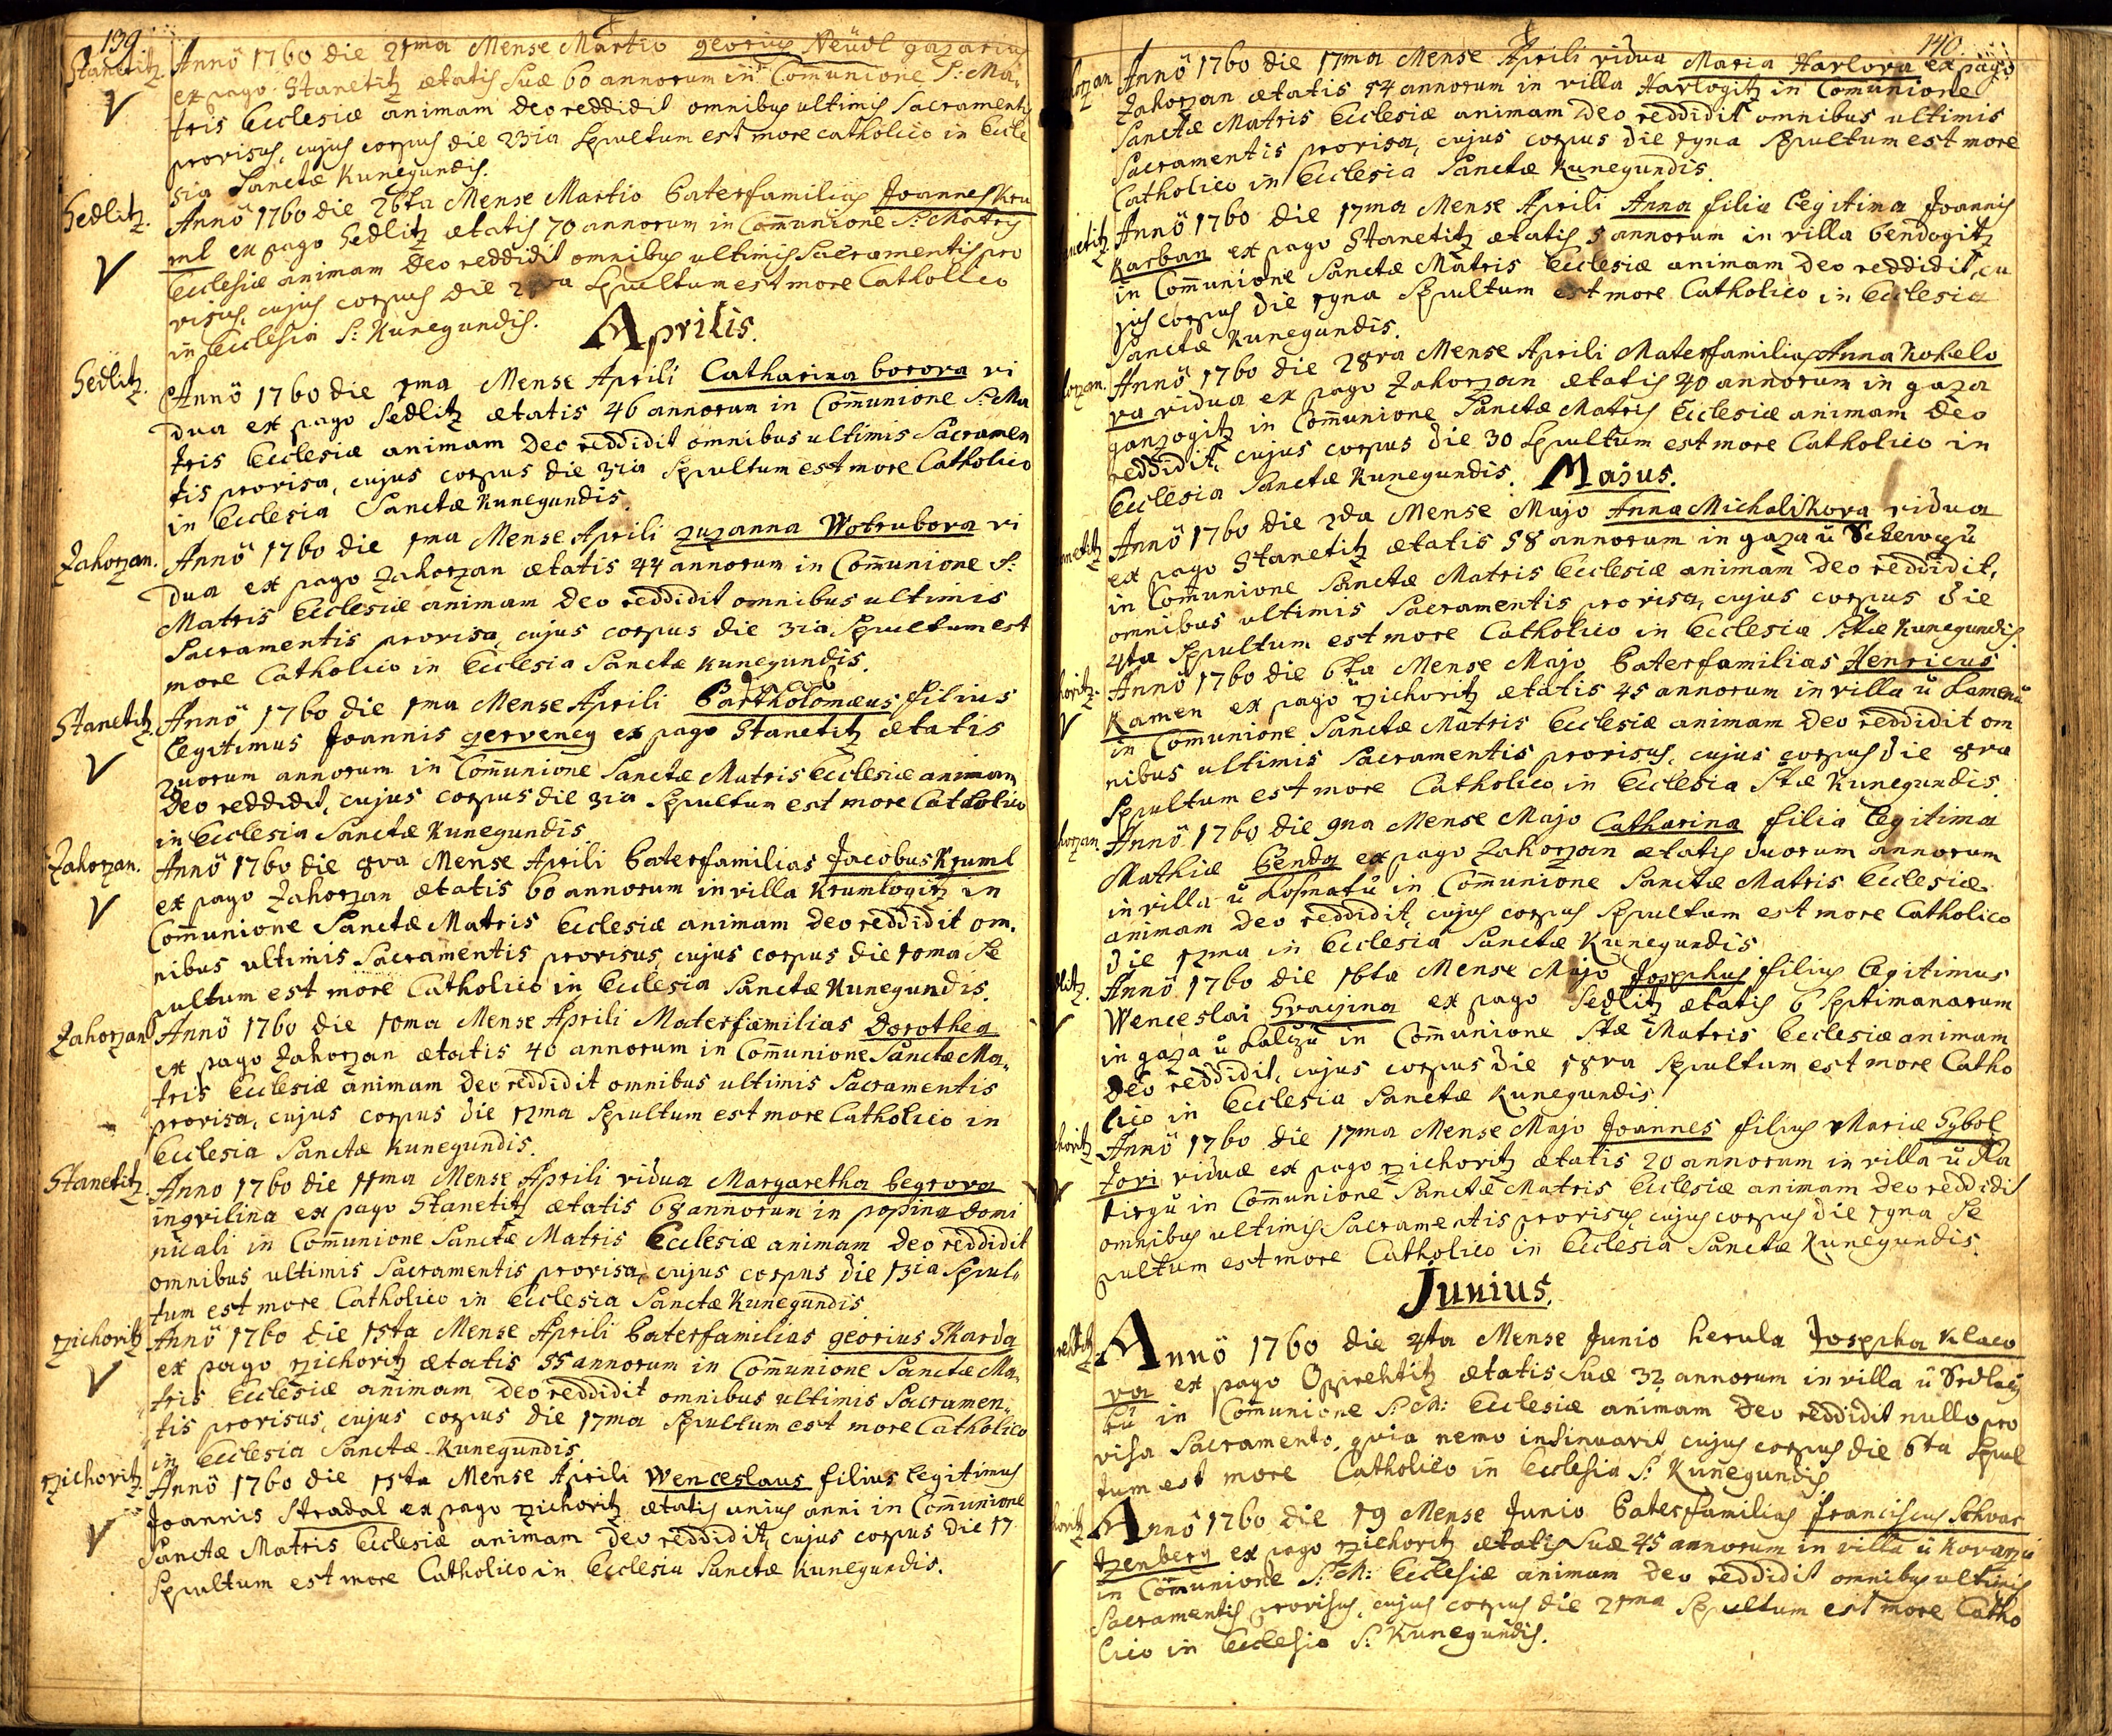 139.
Stanetitz. Annö 1760 die 21ma Mense Martio georius Neüdl gazarius
ex pago Stanetitz ætatis suæ 60 annorum in Com̄unione S: Ma-
tris Ecclesiæ animam deo reddidit omnibus ultimis Sacramentis
provisus, cujus corpus die 23ia Sepultum est more catholico in Eccle
sia Sanctæ Kunegundis.
Sedlitz. Annö 1760 die 26ta Mense Martio Paterfamilias Joannes Kru
ml ex pago Sedlitz ætatis 70 annorum in Com̄unione S: Matris
Ecclesiæ animam Deo reddidit omnibus ultimis Sacramentis pro
visus, cujus corpus die Sepultum est more Catholico
in Ecclesia S: Kunegundis.
Aprilis.
Sedlitz. Annö 1760 die 1ma Mense Aprili Catharina borova vi
dua ex pago Sedlitz ætatis 46 annorum in Com̄unione S: Ma
tris Ecclesiæ animam Deo reddidit omnibus ultimis Sacramen
tis provisa, cujus corpus die 3tia Sepultum est more Catholico
in Ecclesia Sanctæ Kunegundis.
Zahorzan. Annö 1760 die 1ma Mense Aprili zuzanna Wotrubova vi
dua ex pago Zahorzan ætatis 44 annorum in Com̄unione S:
Matris Ecclesiæ animam Deo reddidit omnibus ultimis
Sacramentis provisa, cujus corpus die 3tia Sepultum est
more Catholico in Ecclesia Sanctæ Kunegundis.
Jacob
Stanetitz. Annö 1760 die 1ma Mense Aprili Bartholomæus filius
legitimus Joannis zerveney ex pago Stanetitz ætatis
2uorum annorum in Com̄unione Sanctæ Matris Ecclesiæ animam
Deo reddidit, cujus corpus die 3tia Sepultum est more Catholico
in Ecclesia Sanctæ Kunegundis.
Zahorzan. Annö 1760 die 8va Mense Aprili Paterfamilias Jacobus Kruml
ex pago Zahorzan ætatis 60 annorum in villa Krumlogitz in
Com̄unione Sanctæ Matris Ecclesiæ animam Deo reddidit om-
nibus ultimis Sacramentis provisus cujus corpus die 10ma Se
pultum est more Catholico in Ecclesia Sanctæ Kunegundis.
Zahorzan Annö 1760 die 10ma Mense Aprili Materfamilias Dorothea
ex pago Zahorzan ætatis 40 annorum in Com̄unione Sanctæ Ma-
tris Ecclesiæ animam Deo reddidit omnibus ultimis Sacramentis
provisa, cujus corpus die 12ma Sepultum est more Catholico in
Ecclesia Sanctæ Kunegundis.
Stanetitz. Anno 1760 die 11ma Mense Aprili vidua Margaretha begrova
inqvilina ex pago Stanetitz ætatis 68 annorum in popina domi
nicali in Com̄unione Sanctæ Matris Ecclesiæ animam Deo reddidit
omnibus ultimis Sacramentis provisa, cujus corpus die 13tia Sepul-
tum est more Catholico in Ecclesia Sanctæ Kunegundis
rzichovitz Annö 1760 die 15ta Mense Aprili Paterfamilias georius Skarda
ex pago rzichovitz ætatis 55 annorum in Com̄unione Sanctæ Ma-
tris Ecclesiæ animam Deo reddidit omnibus ultimis Sacramen-
tis provisus, cujus corpus die 17ma Sepultum est more Catholico
in Ecclesia Sanctæ Kunegundis.
rzichovitz Annö 1760 die 15ta Mense Aprili Wenceslaus filius legitimus
Joannis Stradal ex pago rzichovitz ætatis unius anni in Com̄unione
Sanctæ Matris Ecclesiæ animam Deo reddidit, cujus corpus die 17
Sepultum est more Catholico in Ecclesia Sanctæ Kunegundis.
140.
orzan Annö 1760 die 17ma Mense Aprili vidua Maria Harlova ex pago
Zahorzan ætatis 54 annorum in villa Harlogitz in Com̄unione
Sanctæ Matris Ecclesiæ animam Deo reddidit omnibus ultimis
Sacramentis provisa, cujus corpus die 19na Sepultum est more
Catholico in Ecclesia Sanctæ Kunegundis.
netitz. Annö 1760 die 17ma Mense Aprili Anna filia legitima Joannis
Karban ex pago Stanetitz ætatis 5 annorum in villa bendogitz
in Com̄unione Sanctæ Matris Ecclesiæ animam Deo reddidit, cu
jus corpus die 19na Sepultum est more Catholico in Ecclesia
Sanctæ Kunegundis.
orzan. Annö 1760 die 28va Mense Aprili Materfamilias Anna Kohelo
va vidua ex pago Zahorzan ætatis 40 annorum in gaza
ganzogitz in Com̄unione Sanctæ Matris Ecclesiæ animam Deo
reddidit, cujus corpus die 30 Sepultum est more Catholico in
Ecclesia Sanctæ Kunegundis.
Majus.
netitz Annö 1760 die 2da Mense Majo Anna Michalikova vidua
ex pago Stanetitz ætatis 58 annorum in gaza ů
in Com̄unione Sanctæ Matris Ecclesiæ animam Deo reddidit,
omnibus ultimis Sacramentis provisa, cujus corpus die
4ta Sepultum est more Catholico in Ecclesia Stæ Kunegundis.
hovitz. Annö 1760 die 6ta Mense Majo Paterfamilias Henricus
Kamen ex pago rzichovitz ætatis 45 annorum in villa ů Kamenů
in Com̄unione Sanctæ Matris Ecclesiæ animam Deo reddidit om
nibus ultimis Sacramentis provisus, cujus corpus die 8va
Sepultum est more Catholico in Ecclesia Stæ Kunegundis.
horzan Annö 1760 die 9na Mense Majo Catharina filia legitima
Mathiæ benda ex pago Zahorzan ætatis duorum annorum
in villa ů Kosmatů in Com̄unione Sanctæ Matris Ecclesiæ
animam Deo reddidit, cujus corpus Sepultum est more Catholico
die 12ma in Ecclesia Sanctæ Kunegundis
dlitz. Annö 1760 die 16ta Mense Majo Josephus filius legitimus
Wenceslai ex pago Sedlitz ætatis 6 Septimanarum
in gaza ů in Com̄unione Stæ Matris Ecclesiæ animam
Deo reddidit, cujus corpus die 18va Sepultum est more Catho
lico in Ecclesia Sanctæ Kunegundis.
hovitz Annö 1760 die 17ma Mense Majo Joannes filius Mariæ Sybol
tovi viduæ ex pago rzichovitz ætatis 20 annorum in villa ů
in Com̄unione Sanctæ Matris Ecclesiæ animam Deo reddidit
omnibus ultimis Sacramentis provisus, cujus corpus die 19na Se
pultum est more Catholico in Ecclesia Sanctæ Kunegundis.
Junius.
Annö 1760 die 4ta Mense Junio herula Josepha Klaco
va ex pago Opprehtitz ætatis suæ 32 annorum in villa ů Sedlacz
ků in Com̄unione S: M: Ecclesiæ animam Deo reddidit nullo pro
visa Sacramento, qvia nemo insinuavit, cujus corpus die 6ta Sepul
tum est more Catholico in Ecclesia S: Kunegundis.
hovitz Annö 1760 die 19 Mense Junio Paterfamilias franciscus Schvar
tzenberg ex pago rzichovitz ætatis suæ 45 annorum in villa ů Kovarzů
in Com̄unione S: M: Ecclesiæ animam Deo reddidit omnibus ultimis
Sacramentis provisus, cujus corpus die 21ma Sepultum est more Catho
lico in Ecclesia S: Kunegundis.